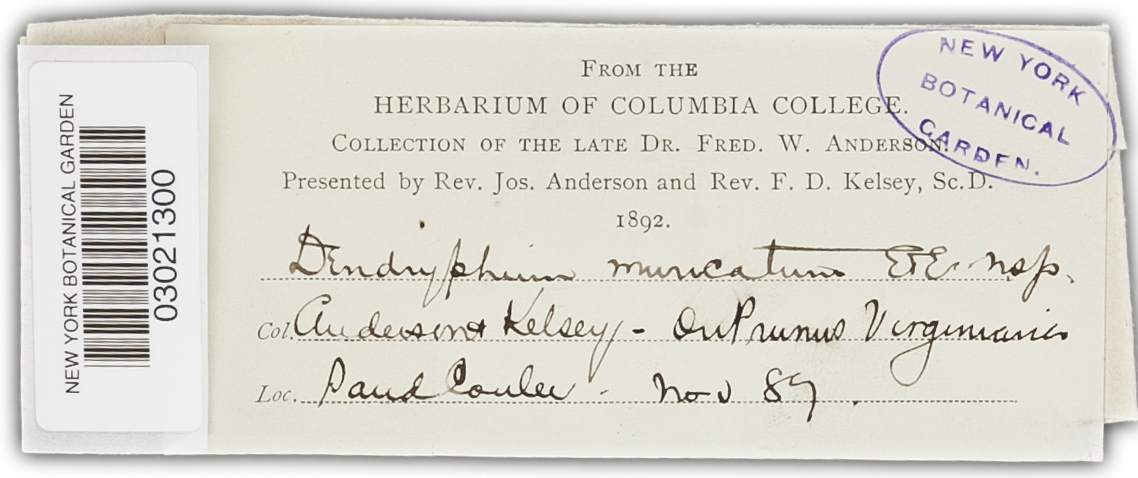 NEW YORK BOTANICAL GARDEN
03021300
NEW YORK
BOTANICAL
GARDEN.
FROM THE
HERBARIUM OF COLUMBIA COLLEGE.
COLLECTION OF THE LATE DR. FRED. W. ANDERSON.
Presented by Rev. Jos. Anderson and Rev. F. D. Kelsey, Sc.D.
1892.
Dendryphium muricatum E&E. nsp.
Col. Anderson & Kelsey - On Prunus Virginiana
Loc. Sand Coulee - Nov 89.